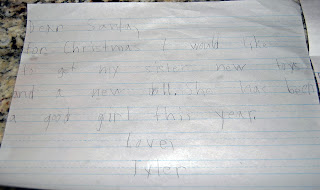 Dear Santa,
for Christmas I would like
to get my sister new toys
and a new doll. She has been
a good girl this year.
Love,
Tyler